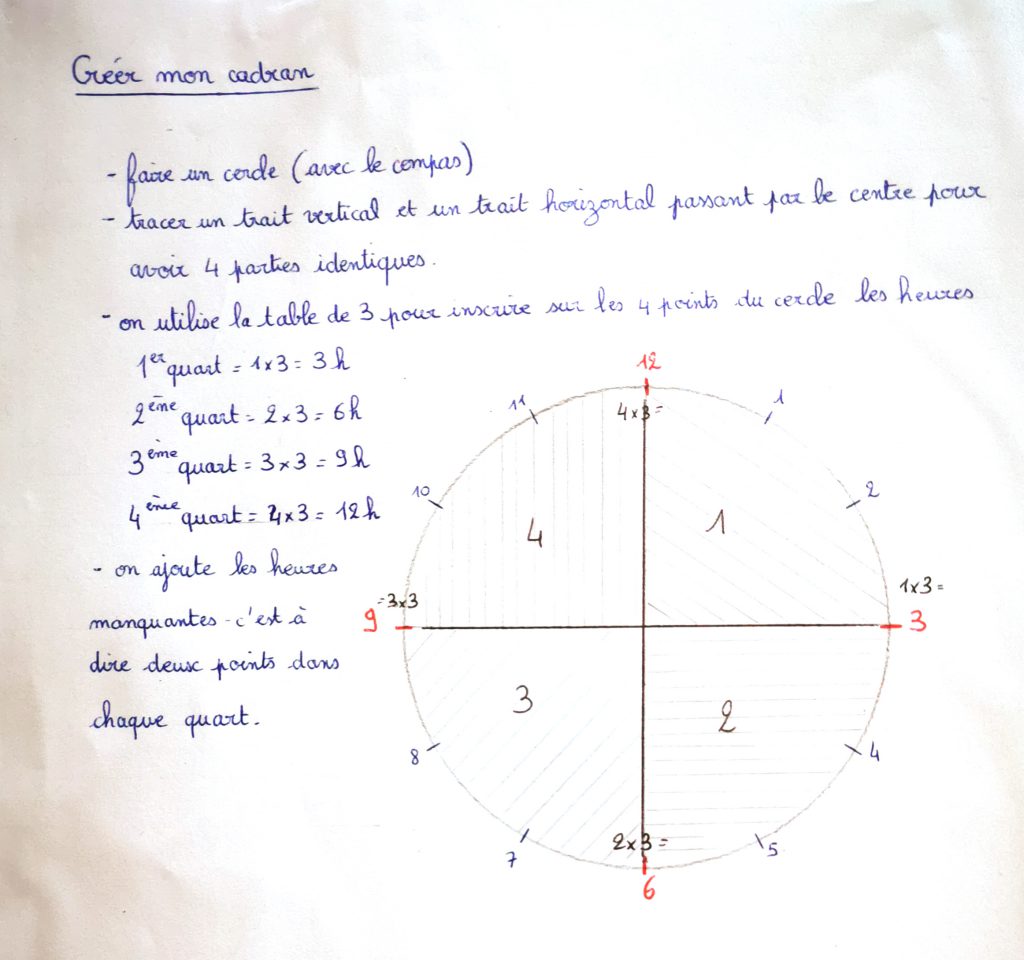 Créer mon cadran
- faire un cercle (avec le compas)
- tracer un trait vertical et un trait horizontal passant par le centre pour
avoir 4 parties identiques.
- on utilise la table de 3 pour inscrire sur les 4 points du cercle les heures
1er quart = 1x3 = 3h
2ème quart = 2x3 = 6h
3ème quart = 3x3 = 9h
4ème quart = 4x3 = 12h
- on ajoute les heures
manquantes - c'est à
dire deux points dans
chaque quart.
12
4x3=
11
1
10
2
4
1
=3x3
1x3=
9
3
3
2
8
4
2x3=
7
5
6